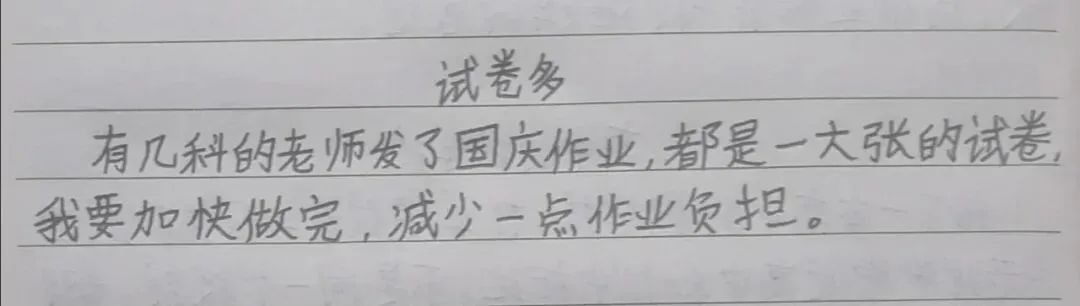 试卷多
有几科的老师发了国庆作业,都是一大张的试卷,
我要加快做完,减少一点作业负担。